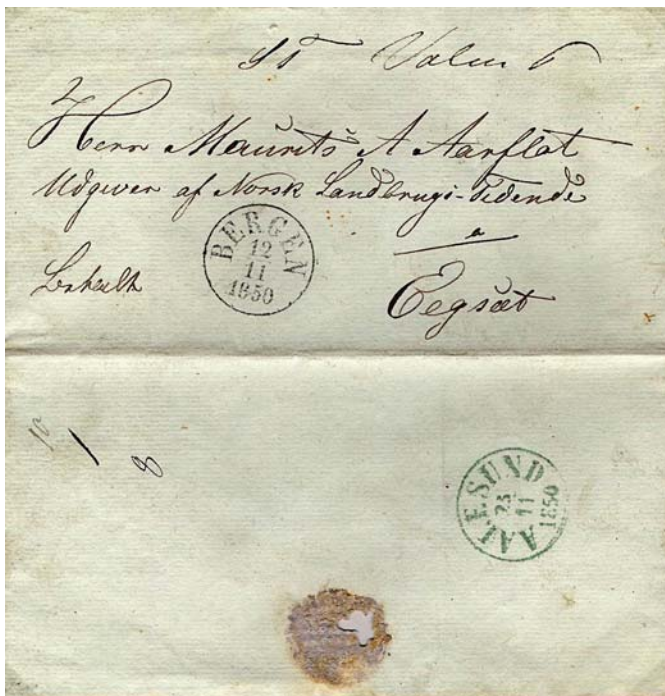 Herr Maurits A Aarflot
Udgiver af Norsk Landbrugs-Tidende
a
BERGEN
12
11
1850
Eegsæt
10
1
8
AALESUND
25
11
1850